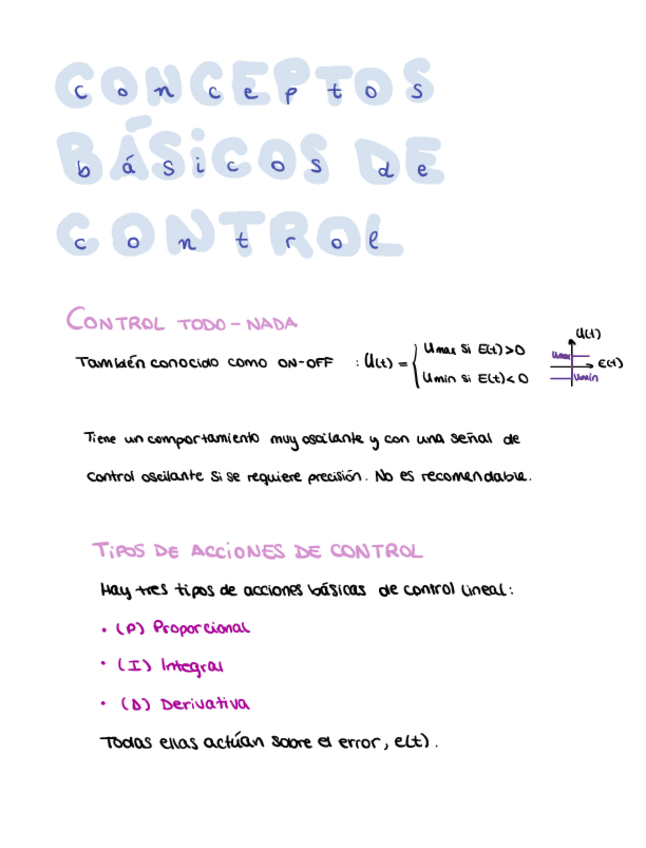 CONCEPTOS
BÁSICOS DE
CONTROL
CONTROL TODO-NADA
También conocido como ON-OFF : U(t) = { Umax si E(t)>0
Umin si E(t)<0
U(t)
Umax
E(t)
Umin
Tiene un comportamiento muy oscilante y con una señal de
control oscilante si se requiere precisión. No es recomendable.
TIPOS DE ACCIONES DE CONTROL
Hay tres tipos de acciones básicas de control lineal:
• (P) Proporcional
• (I) Integral
• (D) Derivativa
Todas ellas actúan sobre el error, e(t).